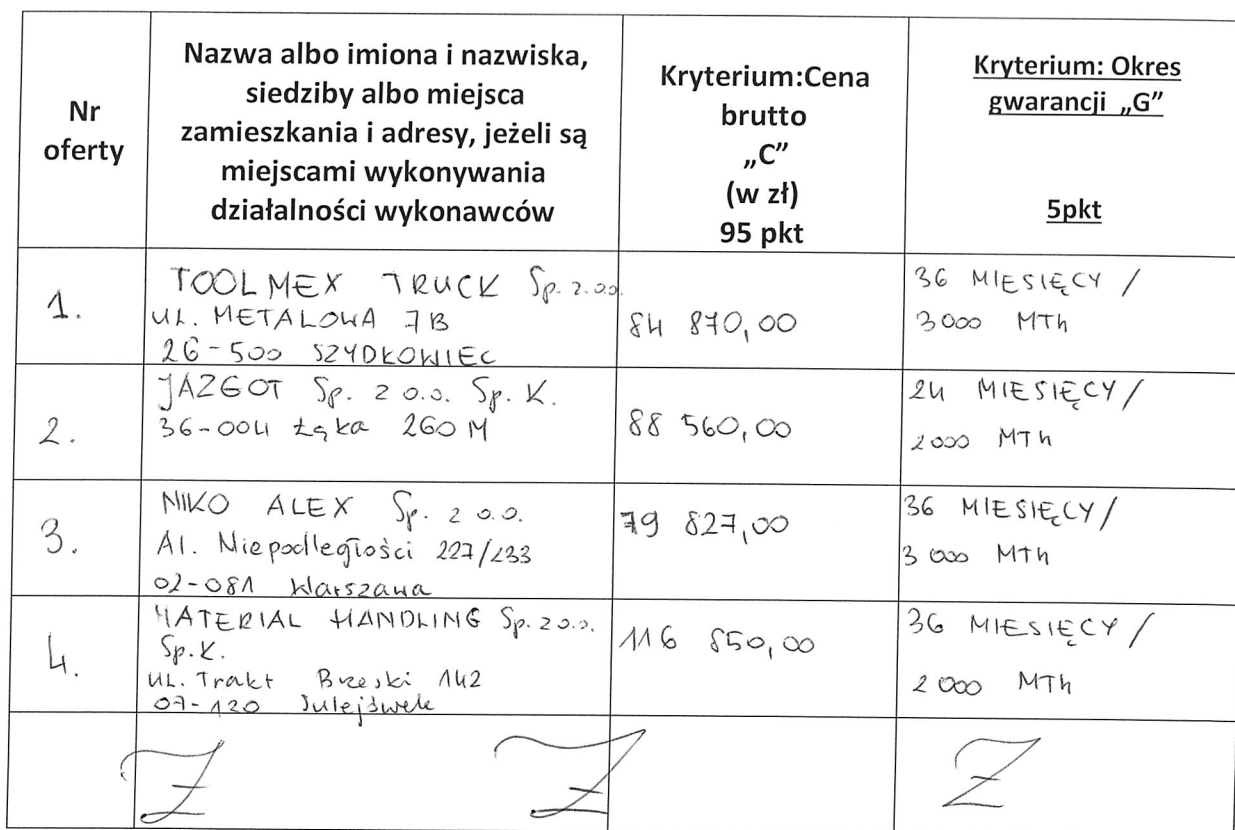 Nr
oferty
Nazwa albo imiona i nazwiska,
siedziby albo miejsca
zamieszkania i adresy, jeżeli są
miejscami wykonywania
działalności wykonawców
Kryterium:Cena
brutto
„C”
(w zł)
95 pkt
Kryterium: Okres
gwarancji „G”
5pkt
1.
TOOLMEX TRUCK Sp. z.o.o.
UL. METALOWA 7B
26-500 SZYDŁOWIEC
84 870,00
36 MIESIĘCY /
3000 MTh
2.
JAZGOT Sp. z o.o. Sp. K.
36-004 Łąka 260 M
88 560,00
24 MIESIĘCY /
2000 MTh
3.
NIKO ALEX Sp. z o.o.
Al. Niepodległości 227/233
02-081 Warszawa
79 827,00
36 MIESIĘCY /
3 000 MTh
4.
MATERIAL HANDLING Sp. z o.o.
Sp.K.
UL. Trakt Brzeski 142
07-120 Sulejówek
116 850,00
36 MIESIĘCY /
2 000 MTh
Z
Z
Z